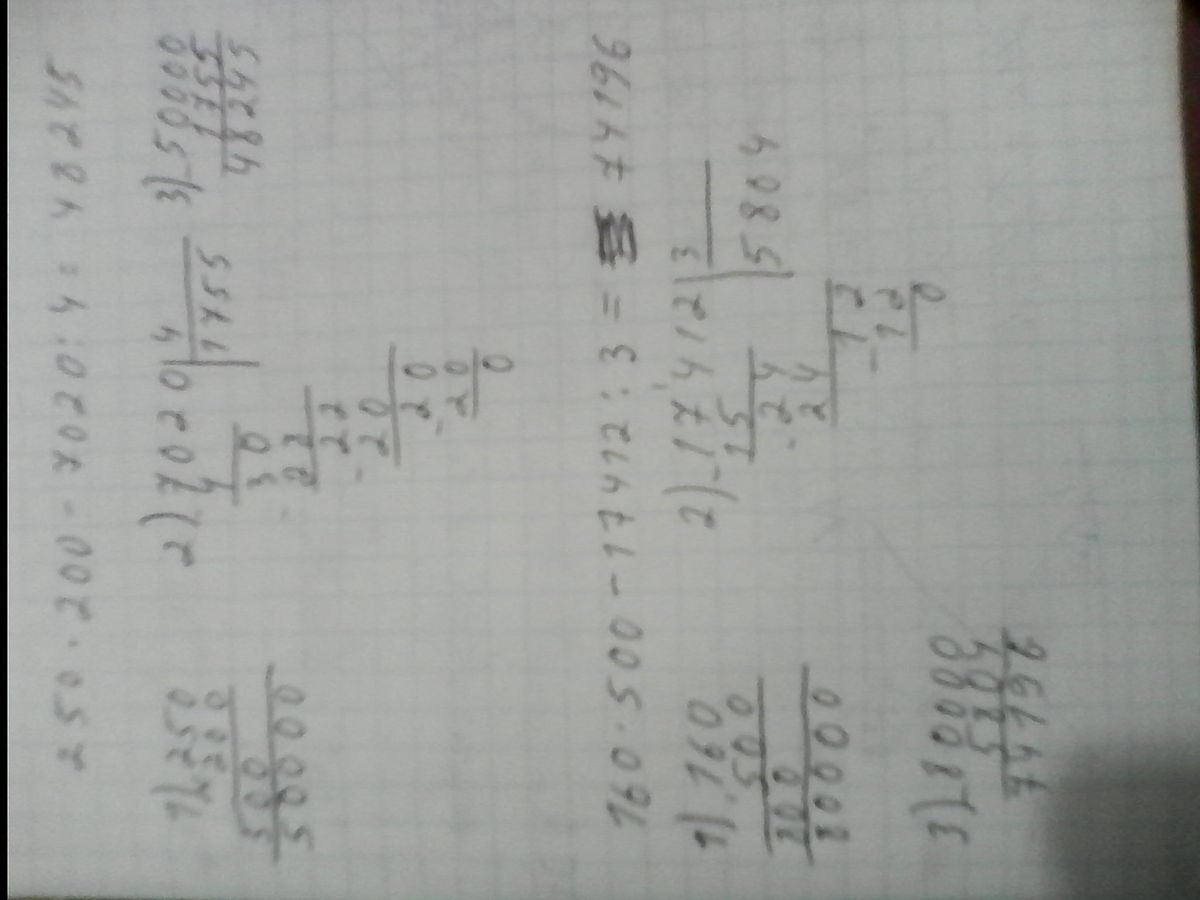 250 · 200 - 7020 : 4 = 48245
1) × 250
200
500
50000
2) - 7020 | 4
4 | 1755
- 30
- 22
20
- 20
20
0
3) - 50000
1755
48245
160 · 500 - 17412 : 3 = 74196
1) · 160
500
800
80000
2) - 17412 | 3
15 | 5804
- 24
24
- 12
12
0
3) - 80000
5804
74196